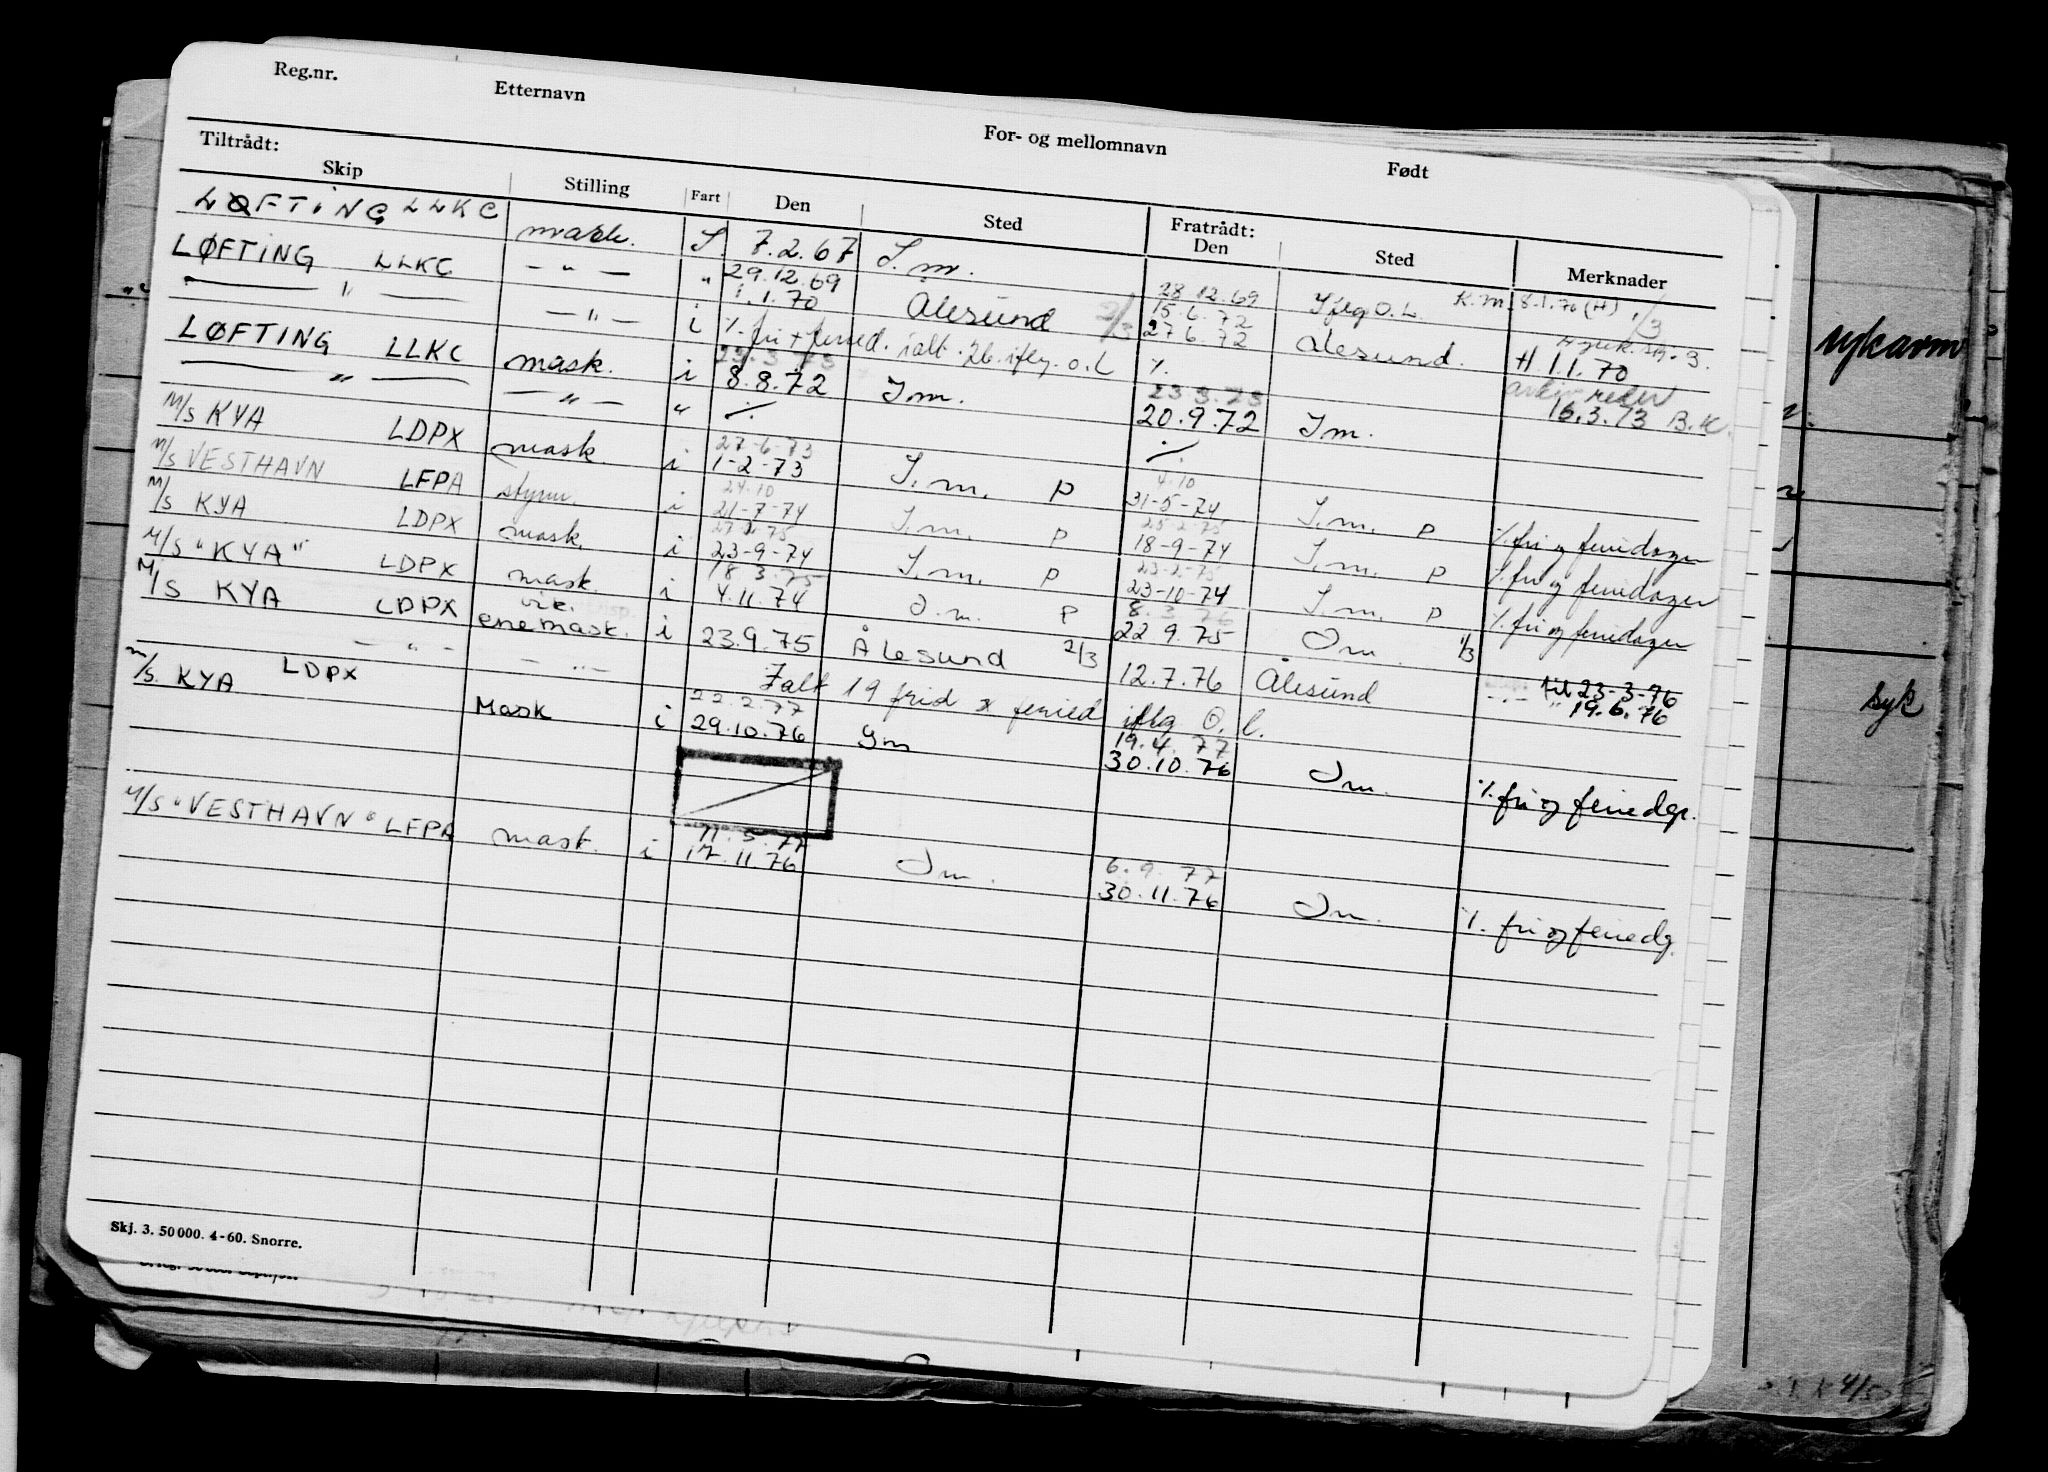 Reg.nr. Etternavn For- og mellomnavn Født
Tiltrådt: Fratrådt:
Skip Stilling Fart Den Sted Den Sted Merknader
LØFTING LLKC mask. S 7.2.67 I.m. 28.12.69 Iflg O.L. K.m. 8.1.70 (H) 1/3
LØFTING LLKC — " — " 29.12.69
— " — — " — i 1.1.70 Ålesund 2/3 15.6.72
27.6.72 Ålesund. H 1.1.70
%. fri + feried. ialt. 26. iflg. O.L %.
23.3.73 23.3.73 16.3.73 B.K.
LØFTING LLKC mask. i 8.8.72 I.m. 20.9.72 I m.
— " — — " — " %. %.
27-6-73 4.10
M/S KYA LDPX mask. i 1-2-73 I.m. P 31-5-74 I.m. P %. fri og feriedager
24.10 25.2.75
M/S VESTHAVN LFPA styrm. i 21-7-74 I.m. P 18-9-74 I.m. P %. fri og feriedager
27.2.75 23-2-75
M/S KYA LDPX mask. i 23-9-74 I.m. P 23-10-74 I.m. P %. fri og feriedager
18.3.75 8.3.76
M/S "KYA" LDPX mask. i 4.11.74 I.m. P 22.9.75 I m. 1/3
vik.
M/S KYA LDPX enemask. i 23.9.75 Ålesund 2/3 12.7.76 Ålesund til 23-3-76
- " - - " - - " - " 19.6.76
Ialt 19 frid x feried iflg O.l.
22.2.77 19.4.77
M/S. KYA LDPX Mask i 29.10.76 Im 30.10.76 I m. %. fri og feriedgr.
11.5.77 6.9.77
M/S "VESTHAVN" LFPA mask. i 17.11.76 I m. 30.11.76 I m. %. fri og feriedg.
Skj. 3. 50 000. 4-60. Snorre.
sykavm
syk